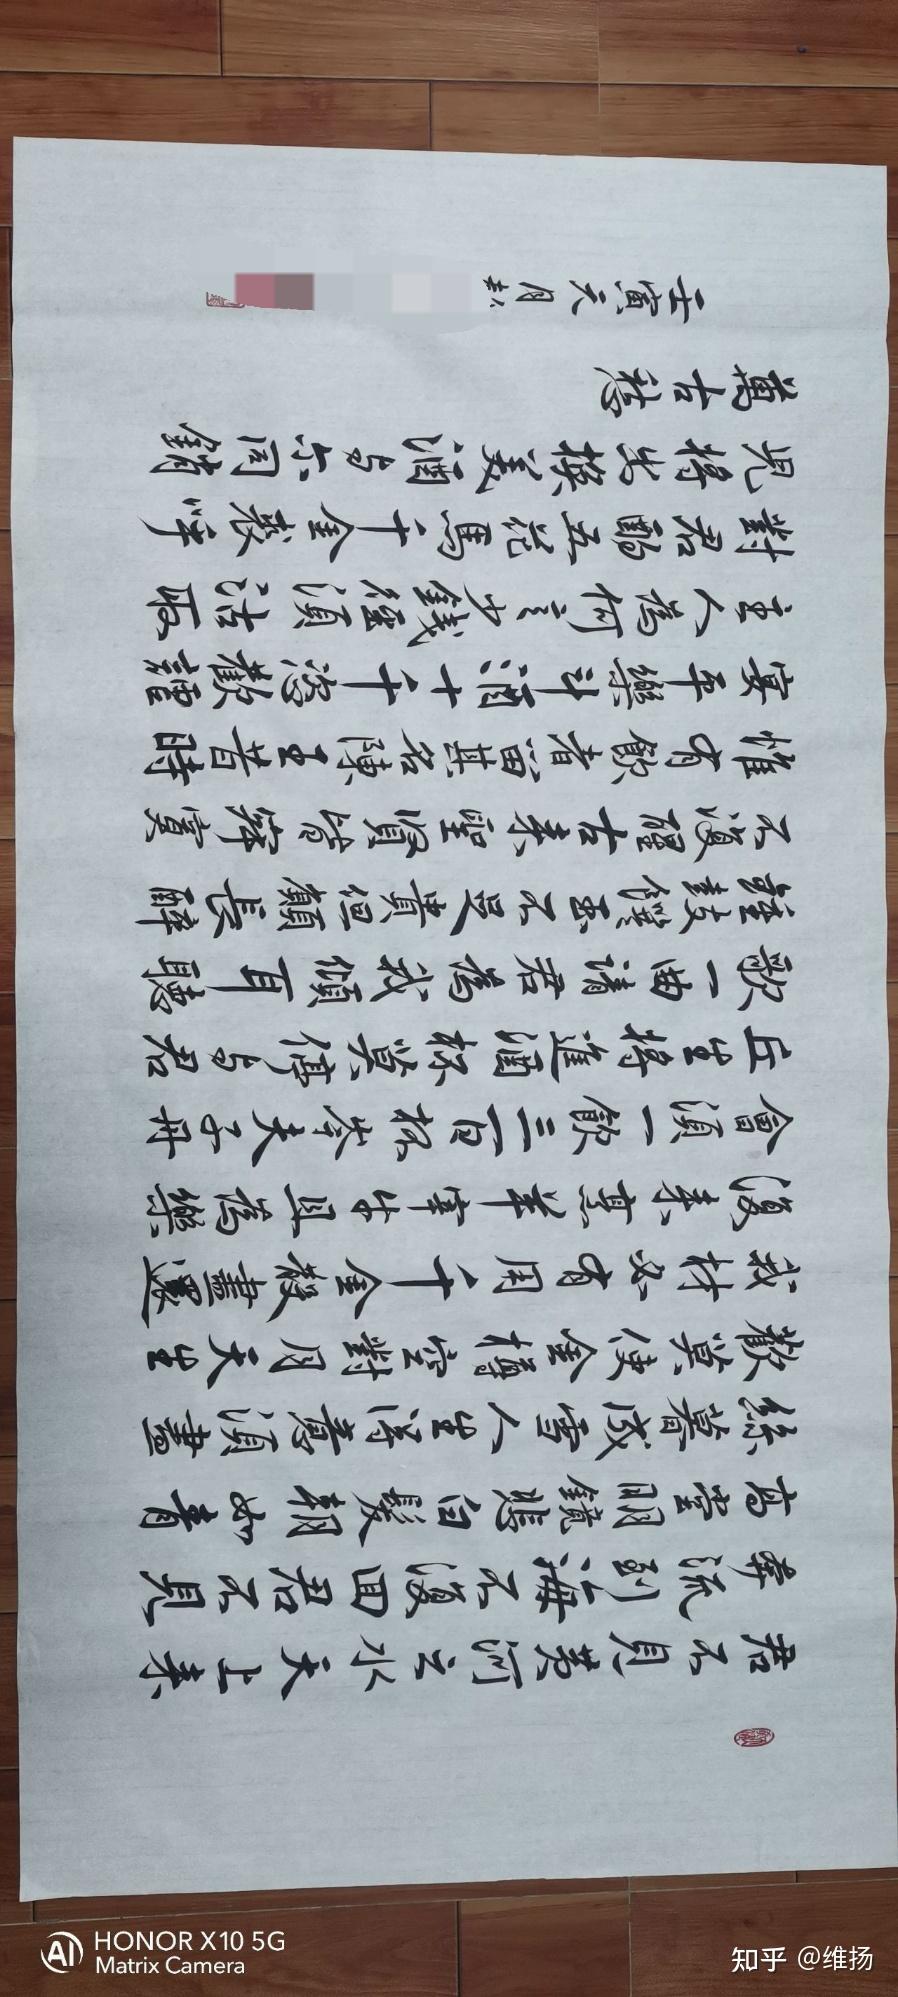 君不見黄河之水天上来
奔流到海不復回君不見
高堂明鏡悲白髮朝如青
絲暮成雪人生得意須盡
歡莫使金樽空對月天生
我材必有用千金散盡還
復来烹羊宰牛且為樂
會須一飲三百杯岑夫子丹
丘生將進酒杯莫停与君
歌一曲請君為我傾耳聽
鐘鼓饌玉不足貴但願長醉
不復醒古来聖賢皆寂寞
惟有飲者留其名陳王昔時
宴平樂斗酒十千恣歡謔
主人為何言少錢徑須沽取
對君酌五花馬千金裘呼
兒將出換美酒与尔同銷
萬古愁
壬寅六月
HONOR X10 5G
Matrix Camera
知乎 @维扬